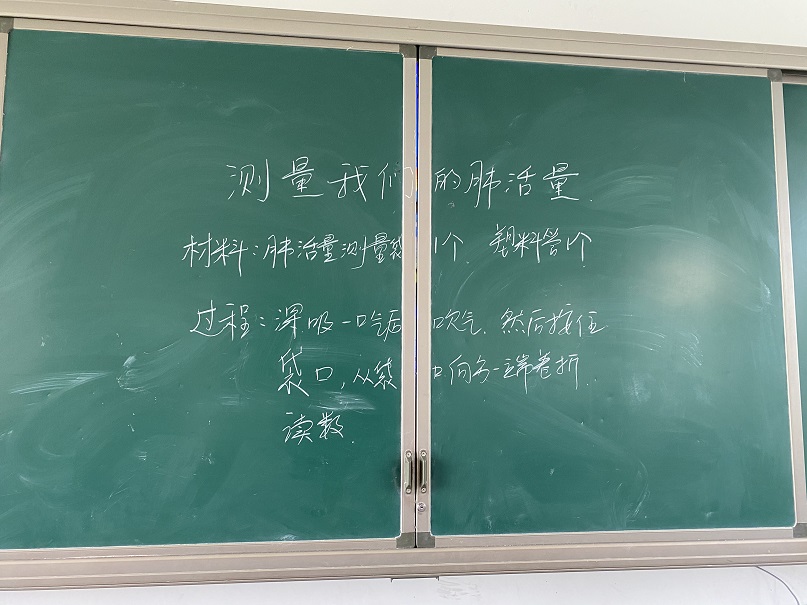 测量我们的肺活量.
材料:肺活量测量袋1个. 塑料管1个
过程:深吸一口气后吹气. 然后按住
袋口,从袋口向另一端卷折.
读数.